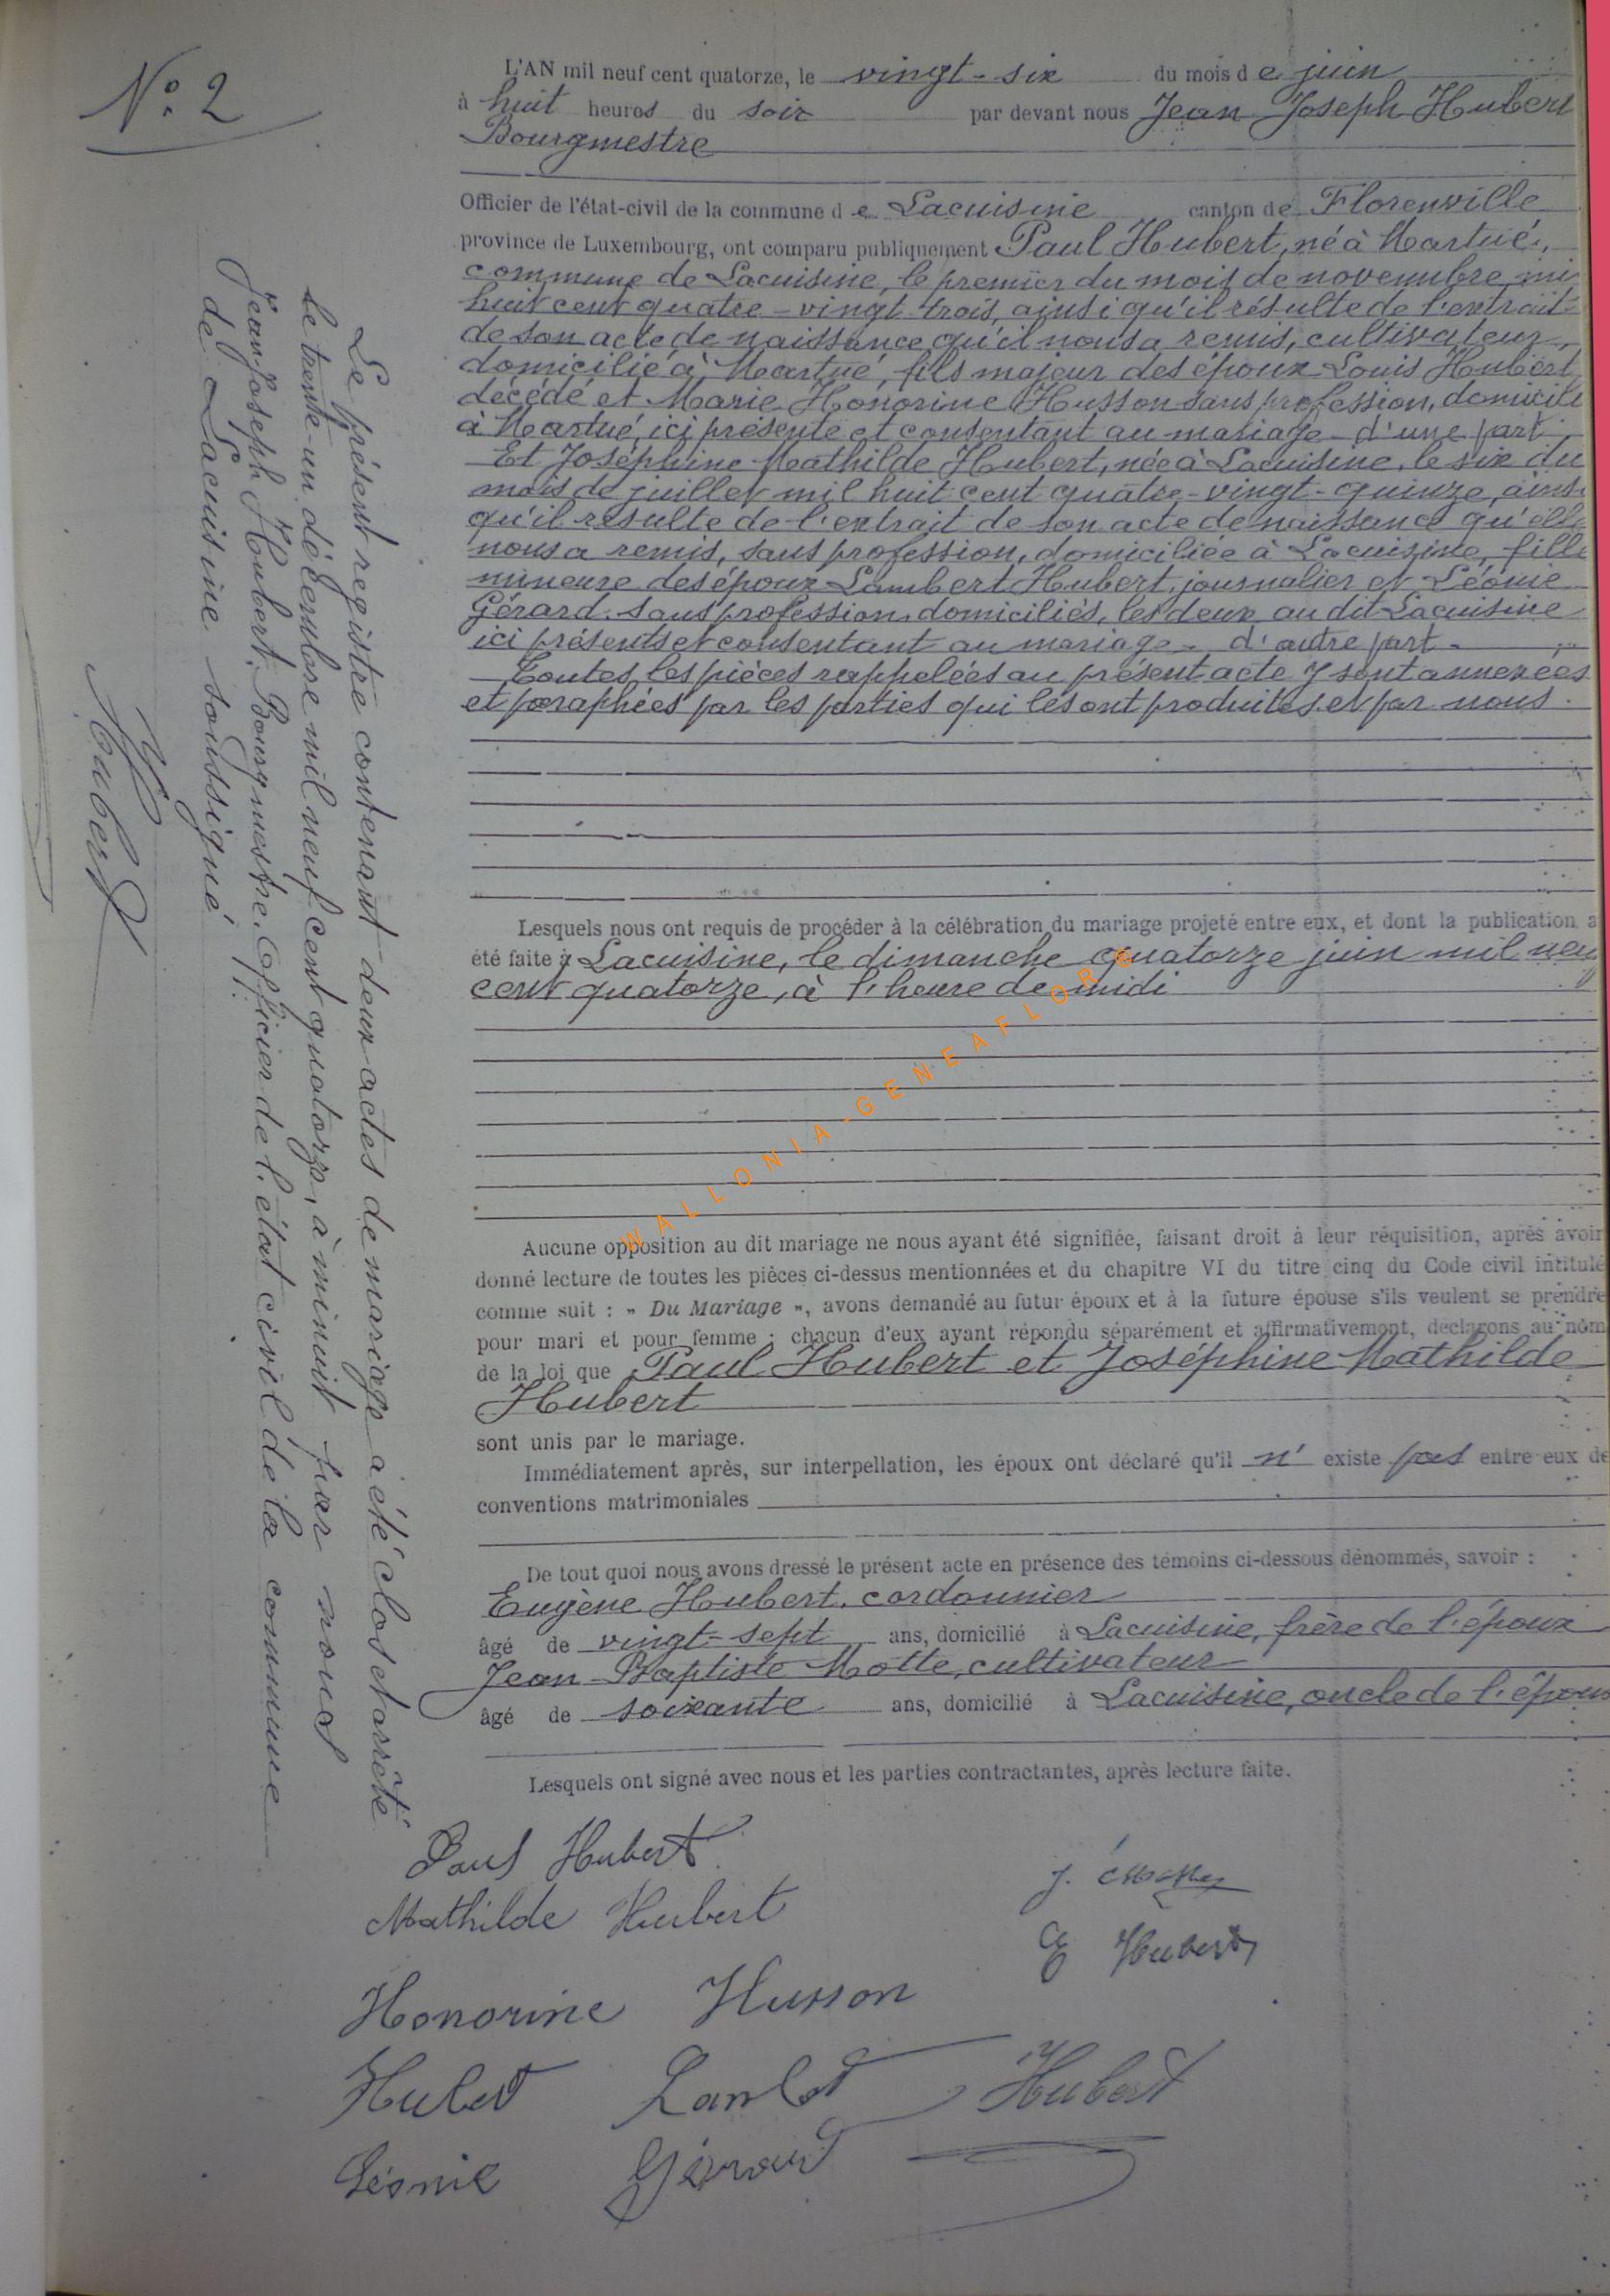 N° 2
L'AN mil neuf cent quatorze, le vingt-six du mois de juin
à huit heures du soir par devant nous Jean Joseph Hubert
Bourgmestre
Officier de l'état-civil de la commune de Lacuisine canton de Florenville
province de Luxembourg, ont comparu publiquement Paul Hubert, né à Martué,
commune de Lacuisine, le premier du mois de novembre mi
huit cent quatre-vingt trois, ainsi qu'il résulte de l'extrait
de son acte de naissance qu'il nous a remis, cultivateur,
domicilié à Martué, fils majeur des époux Louis Hubert
décédé et Marie Honorine Husson sans profession, domicile
à Martué, ici présente et consentant au mariage - d'une part
Et Joséphine Mathilde Hubert, née à Lacuisine, le six du
mois de juillet mil huit cent quatre-vingt-quinze, ainsi
qu'il résulte de l'extrait de son acte de naissance qu'elle
nous a remis, sans profession, domiciliée à Lacuisine, fille
mineure des époux Lambert Hubert, journalier et Léonie
Gérard. sans profession, domiciliés, les deux au dit Lacuisine
ici présents et consentant au mariage - d'autre part -
Toutes les pièces rappelées au présent acte y sont annexées
et paraphées par les parties qui les ont produites et par nous.
Lesquels nous ont requis de procéder à la célébration du mariage projeté entre eux, et dont la publication a
été faite à Lacuisine, le dimanche quatorze juin mil neuf
cent quatorze, à l'heure de midi
WALLONIA-GENEAFLORE
Aucune opposition au dit mariage ne nous ayant été signifiée, faisant droit à leur réquisition, après avoir
donné lecture de toutes les pièces ci-dessus mentionnées et du chapitre VI du titre cinq du Code civil intitulé
comme suit : « Du Mariage », avons demandé au futur époux et à la future épouse s'ils veulent se prendre
pour mari et pour femme ; chacun d'eux ayant répondu séparément et affirmativement, déclarons au nom
de la loi que Paul Hubert et Joséphine Mathilde
Hubert
sont unis par le mariage.
Immédiatement après, sur interpellation, les époux ont déclaré qu'il n' existe pas entre eux de
conventions matrimoniales
De tout quoi nous avons dressé le présent acte en présence des témoins ci-dessous dénommés, savoir :
Eugène Hubert, cordonnier
âgé de vingt-sept ans, domicilié à Lacuisine, frère de l'époux
Jean-Baptiste Motte, cultivateur
âgé de soixante ans, domicilié à Lacuisine, oncle de l'époux
Lesquels ont signé avec nous et les parties contractantes, après lecture faite.
Paul Hubert
Mathilde Hubert
Honorine Husson
Hubert Lambert Hubert
Léonie Gérard
J.
E Hubert
Le présent registre contenant deux actes de mariage a été clos et arrêté
le trente-un décembre mil neuf cent quatorze, à minuit par nous
Jean Joseph Hubert, Bourgmestre, Officier de l'état civil de la commune
de Lacuisine soussigné
Hubert